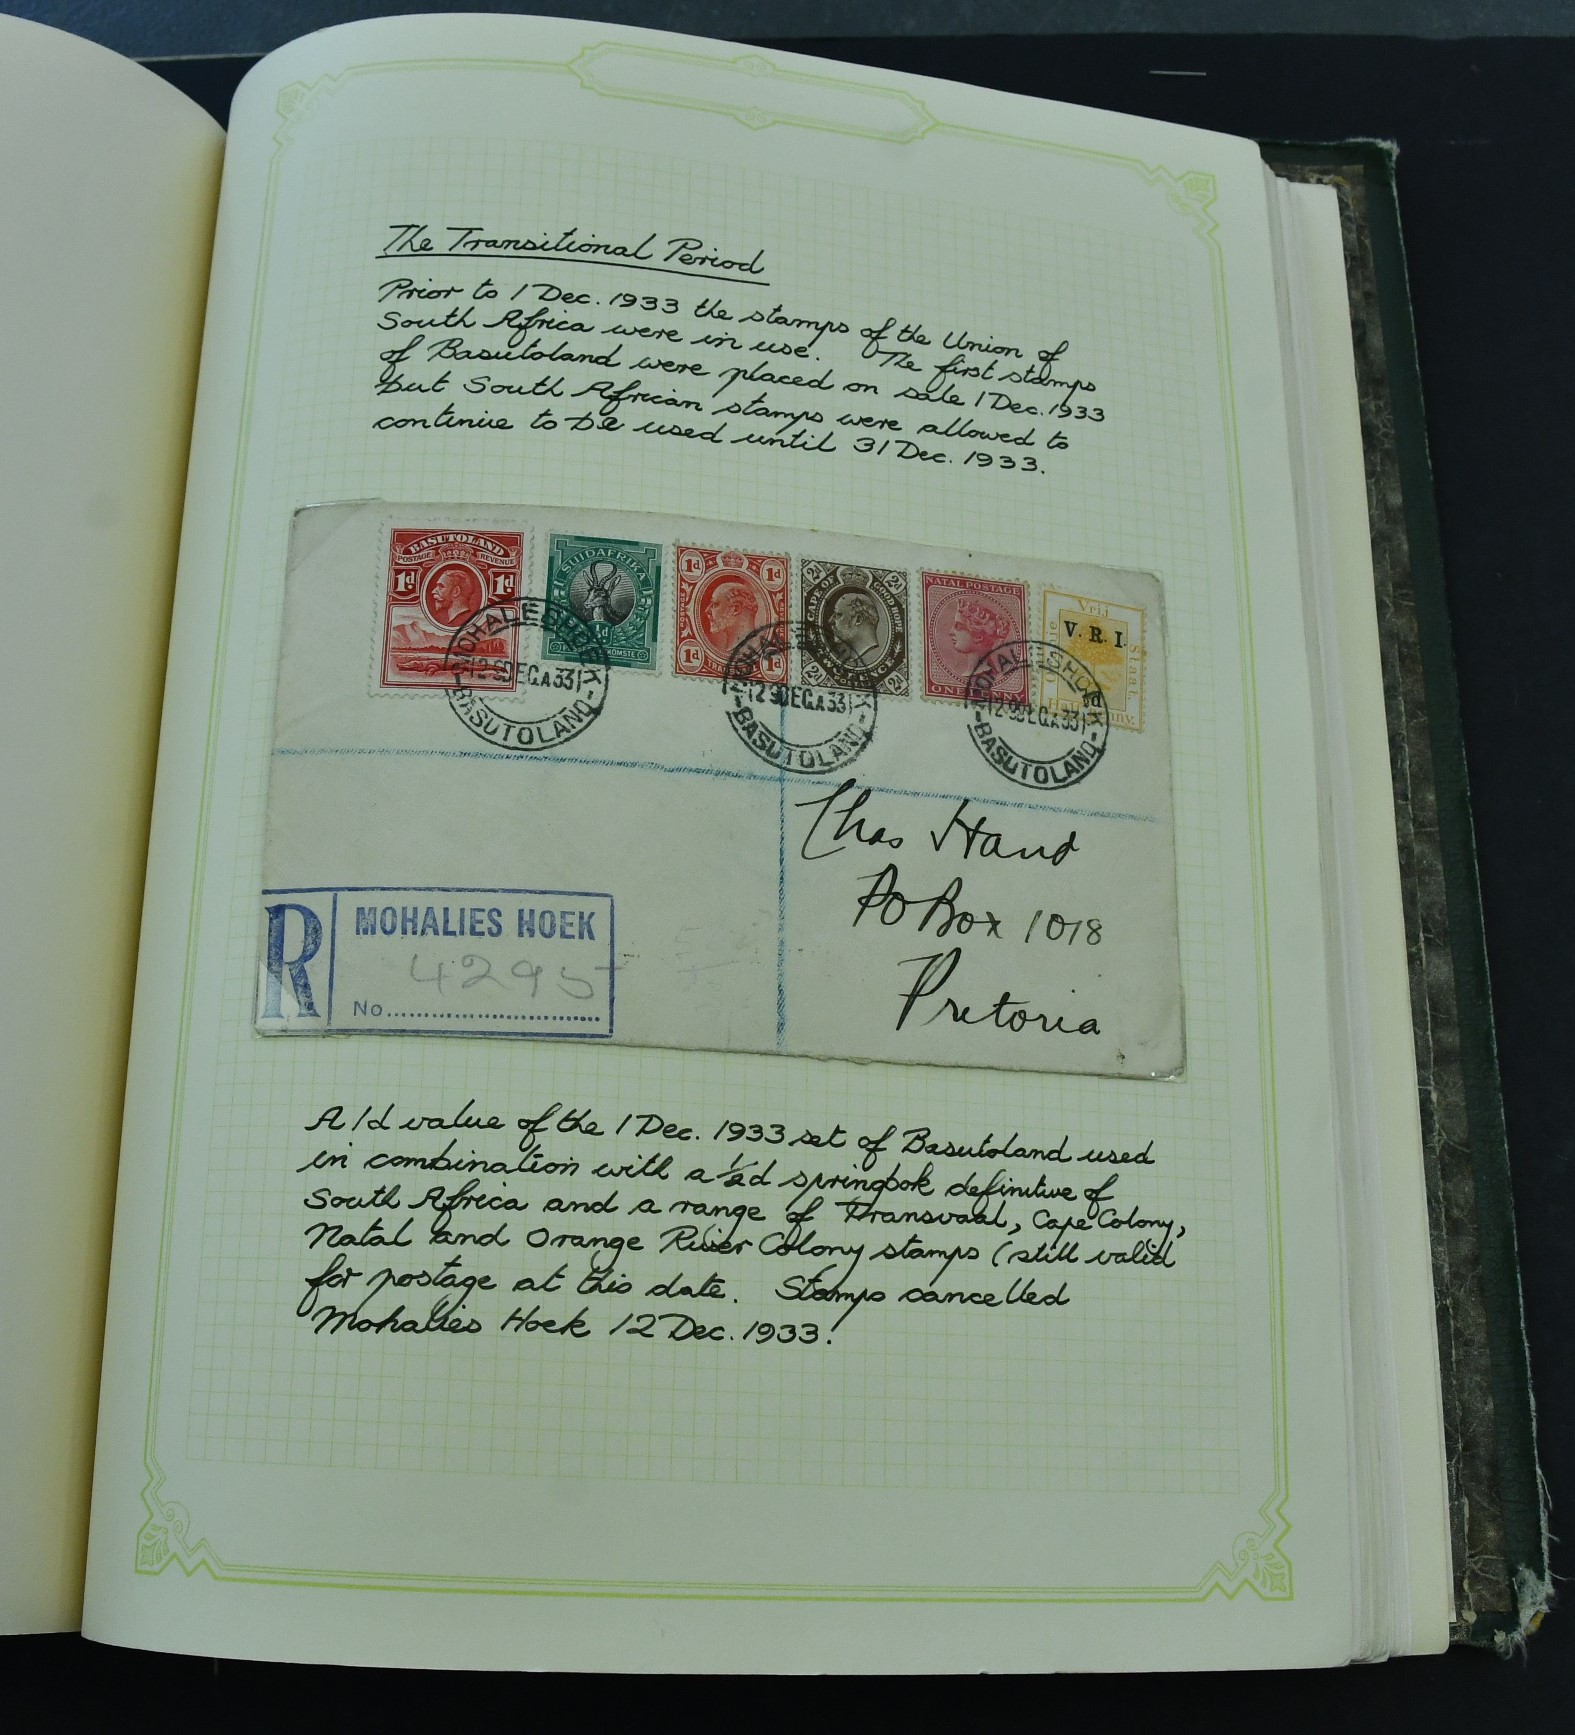 The Transitional Period
Prior to 1 Dec. 1933 the stamps of the Union of
South Africa were in use. The first stamps
of Basutoland were placed on sale 1 Dec. 1933
but South African stamps were allowed to
continue to be used until 31 Dec. 1933.
BASUTOLAND
POSTAGE REVENUE
1d 1d
SUIDAFRIKA
½d
1d 1d
POSTAGE
1d 1d
2d 2d
CAPE OF GOOD HOPE
2d 2d
NATAL POSTAGE
ONE PENNY
Vrij
Staat.
V. R. I.
MOHALESHOEK
BASUTOLAND
MOHALESHOEK
BASUTOLAND
MOHALESHOEK
BASUTOLAND
Chas Hand
PO Box 1018
Pretoria
R
MOHALIES HOEK
4295
No
A 1d value of the 1 Dec. 1933 set of Basutoland used
in combination with a ½d springbok definitive of
South Africa and a range of Transvaal, Cape Colony,
Natal and Orange River Colony stamps (still valid
for postage at this date. Stamps cancelled
Mohalies Hoek 12 Dec. 1933.